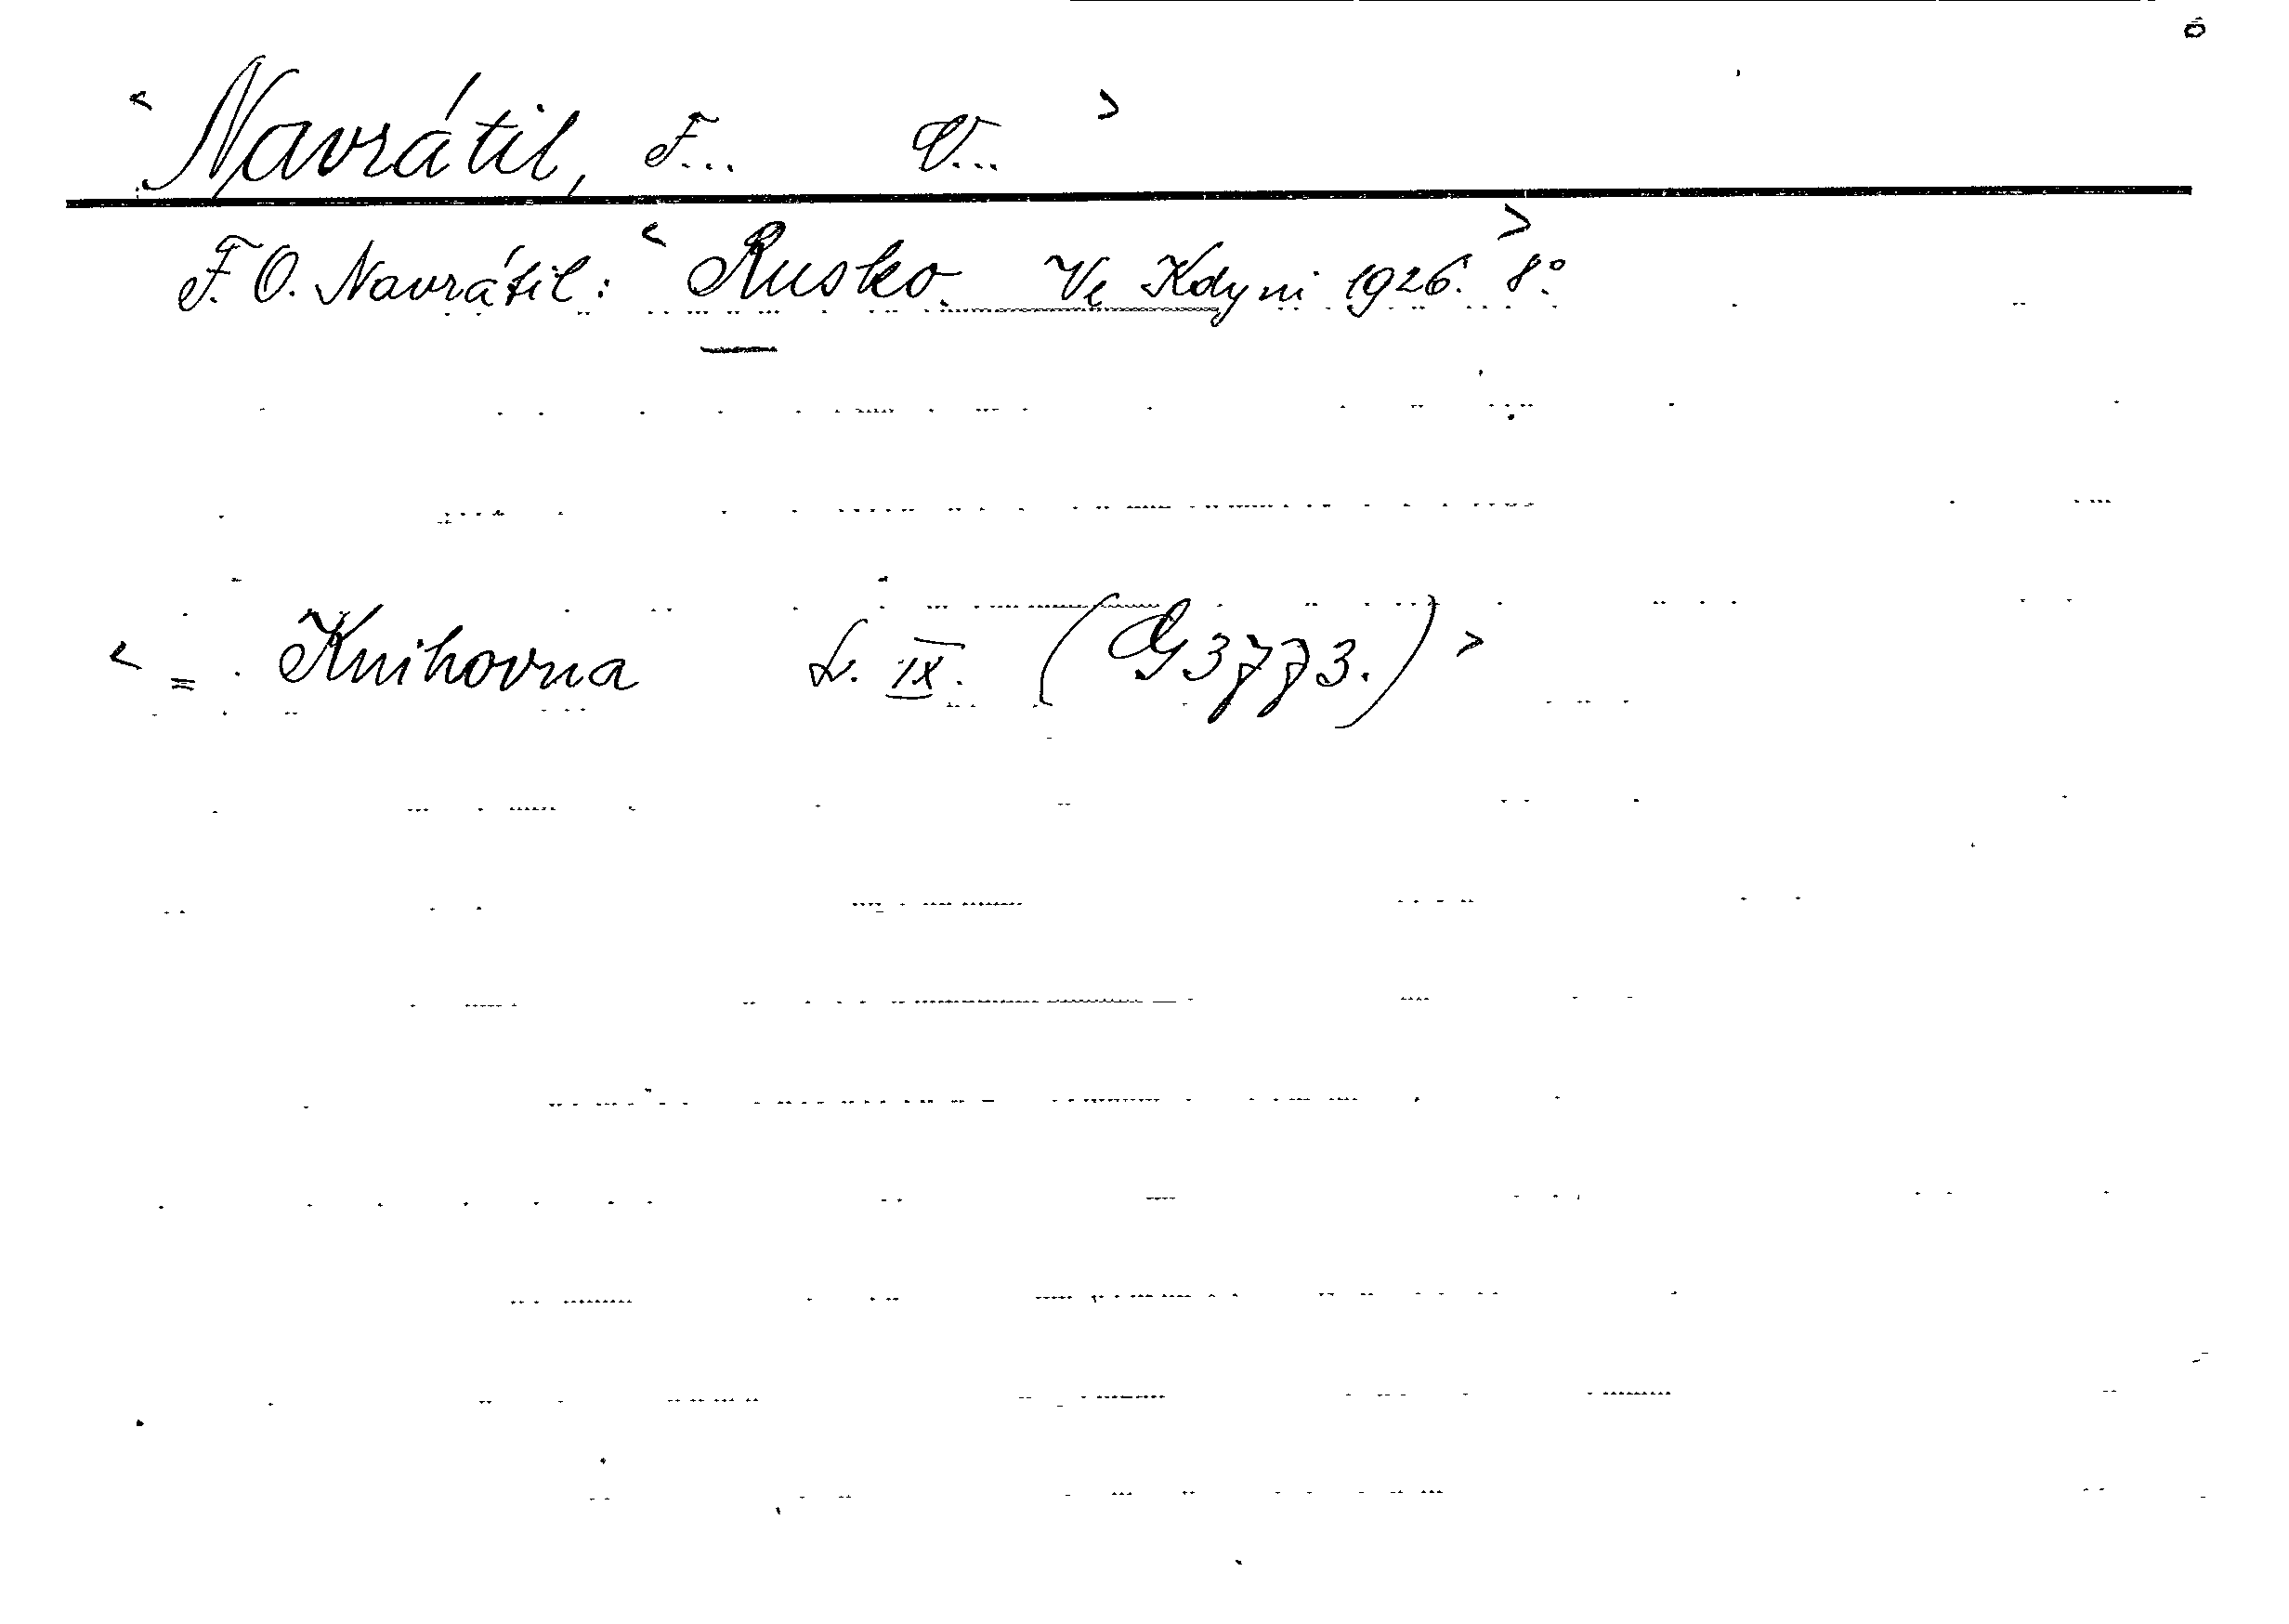 <Navrátil, F... O...>
F. O. Navrátil: <Rusko. Ve Kdyni 1926.> 8°.
<= Knihovna L. IX. (G 3773.)>